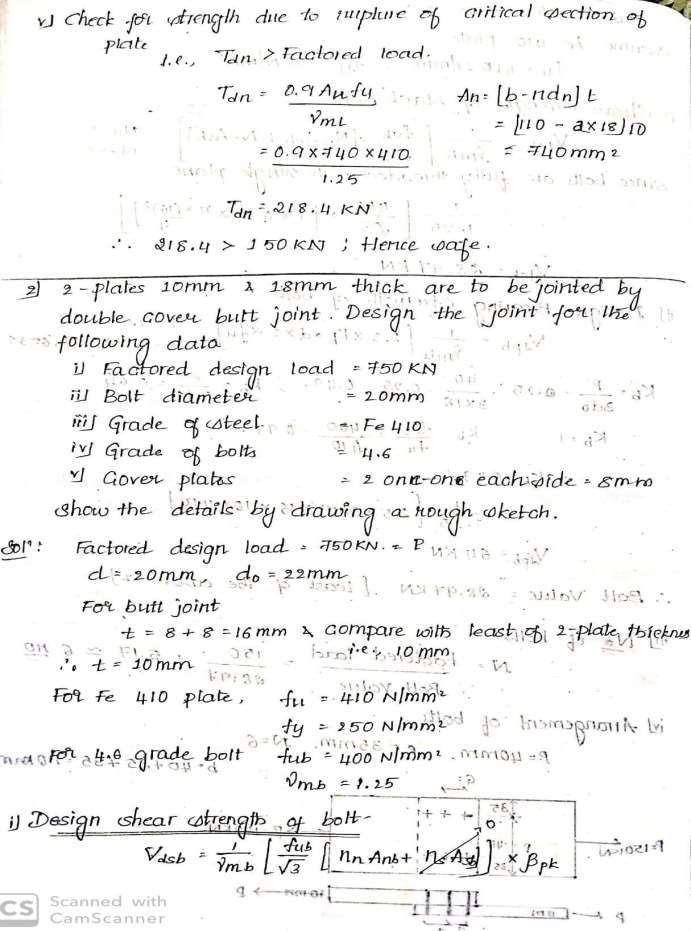 v) Check for strength due to rupture of critical section of
plate
i.e., Tdn > Factored load.
Tdn = 0.9 An fu / γm1
An = [b-ndn] t
= 0.9 x 740 x 410 / 1.25
= [110 - 2x18] 10
= 740 mm2
Tdn = 218.4 KN
∴ 218.4 > 150 KN ; Hence safe.
2) 2-plates 10mm & 18mm thick are to be jointed by
double cover butt joint. Design the joint for the
following data
i) Factored design load = 750 KN
ii) Bolt diameter = 20mm
iii) Grade of steel = Fe 410
iv) Grade of bolts = 4.6
v) Cover plates = 2 one-one each side = 8mm
Show the details by drawing a rough sketch.
Solⁿ: Factored design load = 750KN. = P
d = 20mm, do = 22mm
For butt joint
t = 8 + 8 = 16mm & compare with least of 2-plate thickness
i.e., 10mm
∴ t = 10mm
For Fe 410 plate, fu = 410 N/mm2
fy = 250 N/mm2
For 4.6 grade bolt fub = 400 N/mm2
γmb = 1.25
i) Design shear strength of bolt-
Vdsb = 1/γmb [fub/√3 [nn Anb + ns Asb]] x βpk
CS Scanned with
CamScanner